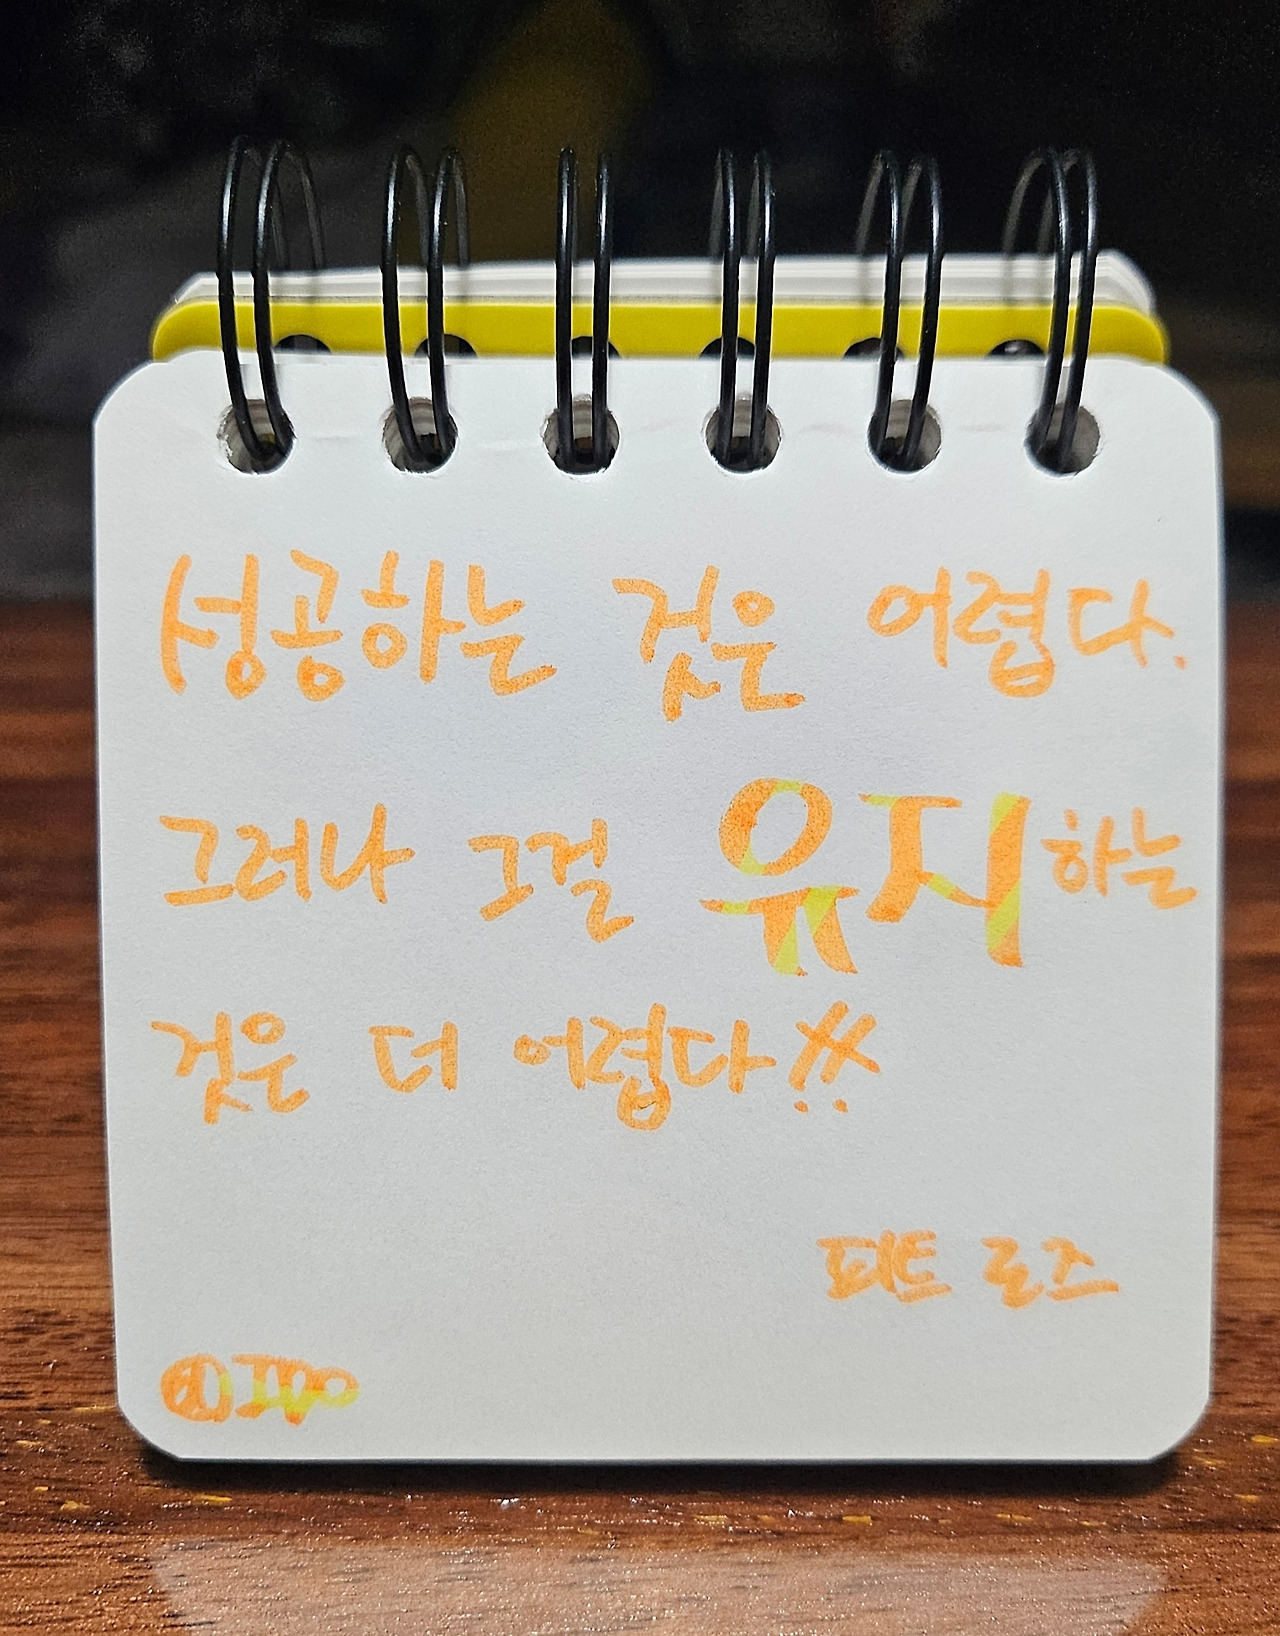 성공하는 것은 어렵다.
그러나 그걸 유지하는
것은 더 어렵다!!
피트 로즈